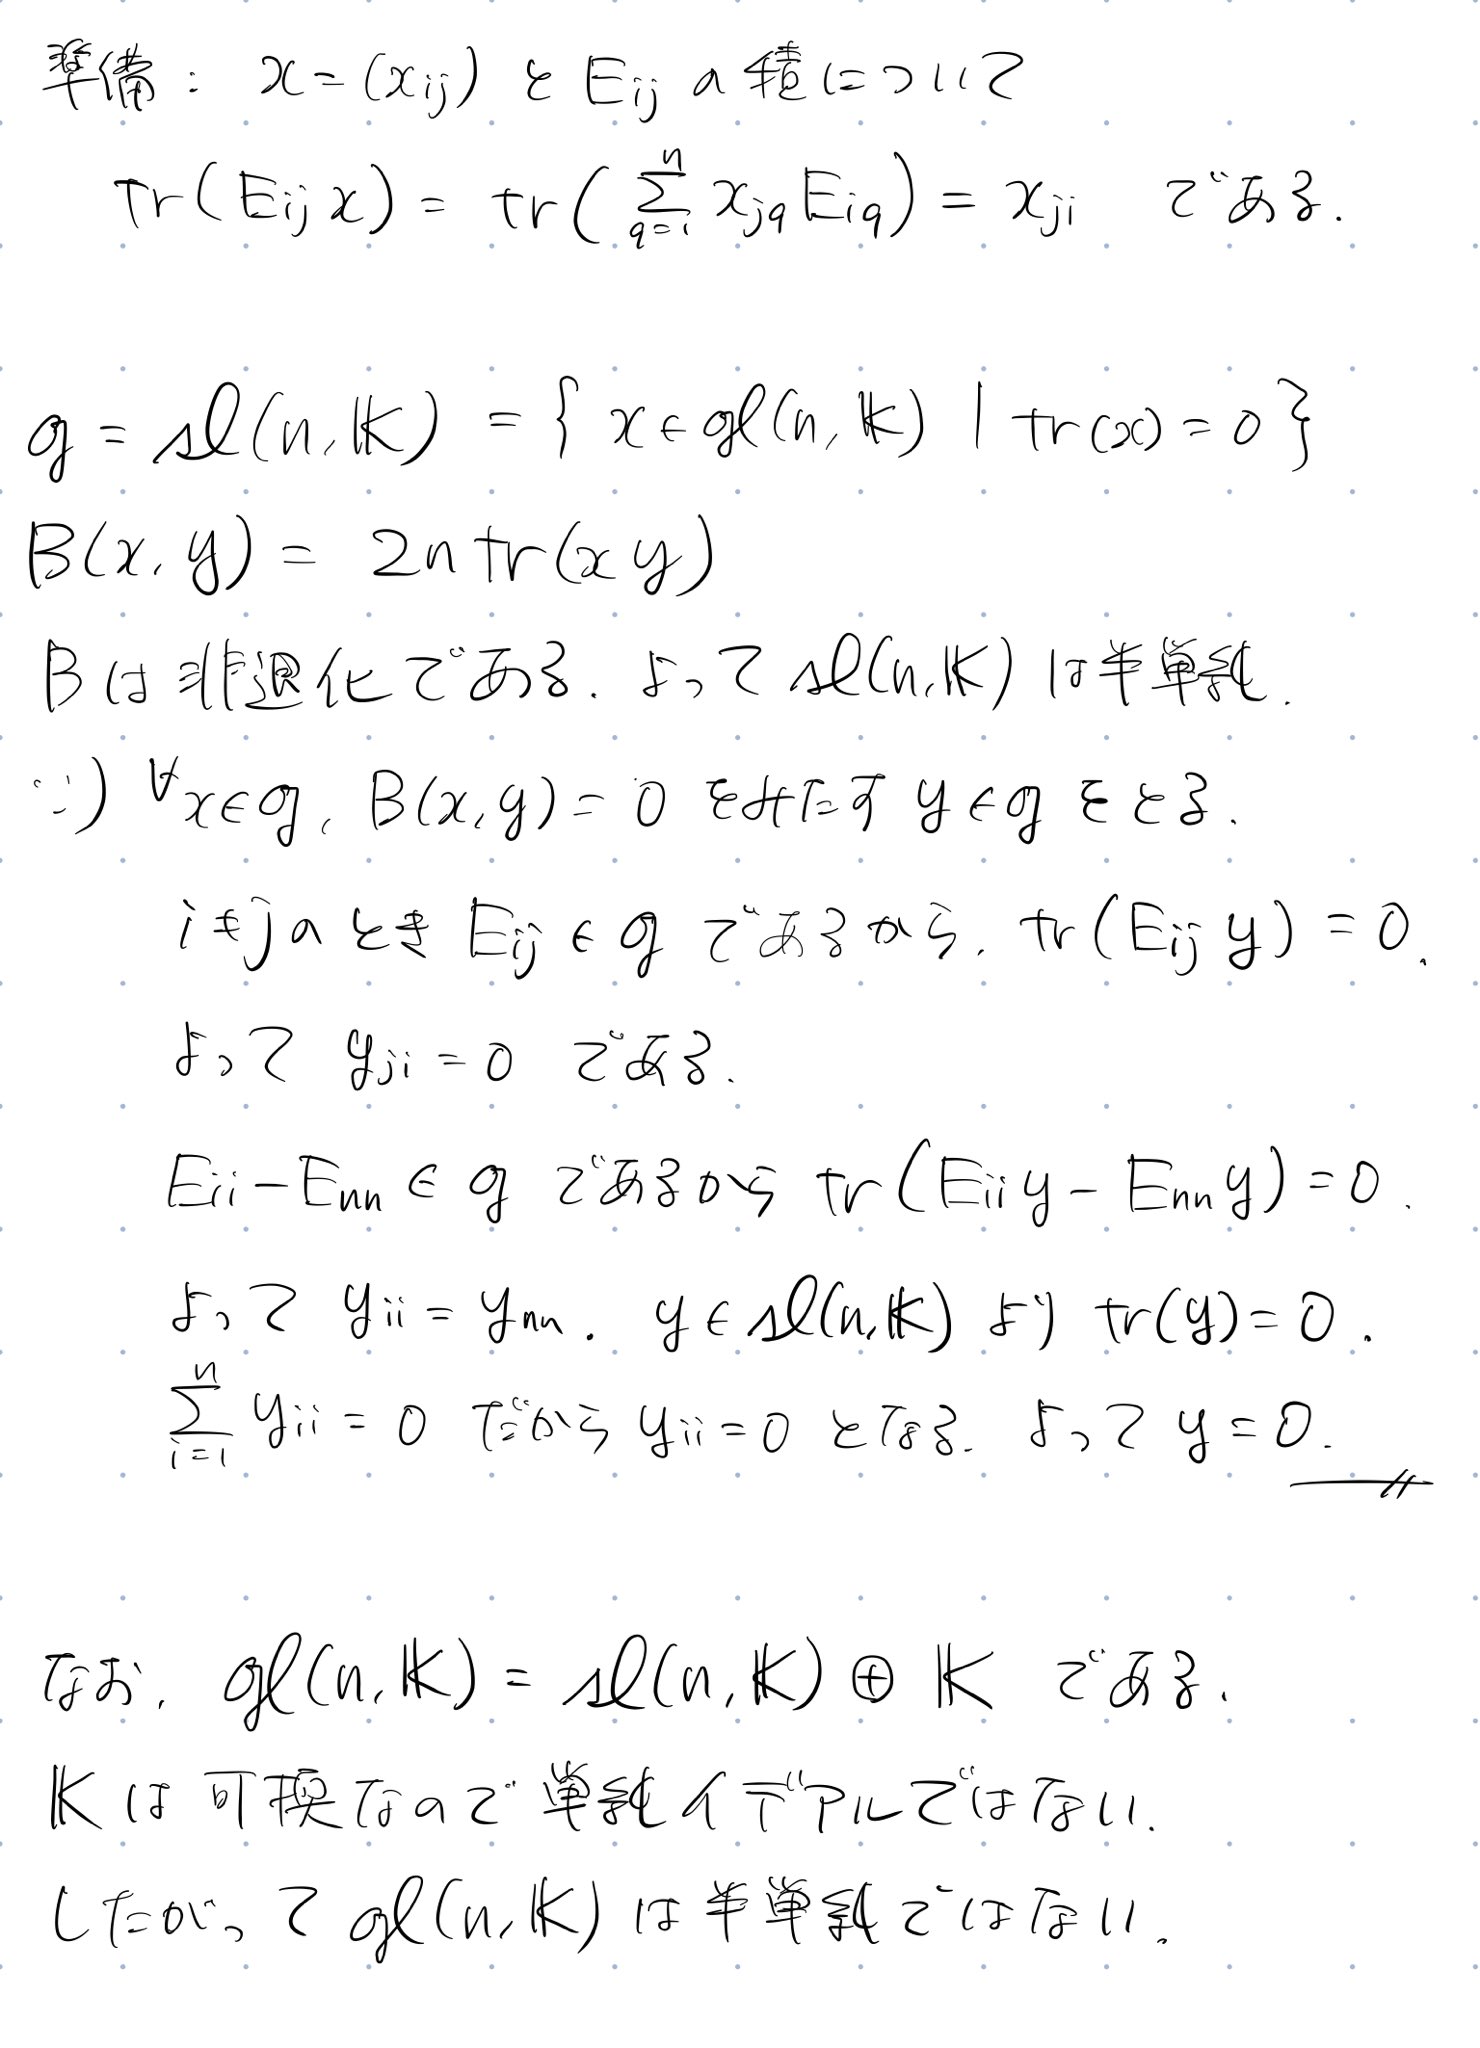 準備: x=(x_ij) と E_ij の積について
tr(E_ij x) = tr(∑_{q=1}^{n} x_jq E_iq) = x_ji である.
g = sl(n,𝕂) = { x∈gl(n,𝕂) | tr(x)=0 }
B(x,y) = 2n tr(xy)
Bは非退化である. よって sl(n,𝕂) は半単純.
∵) ∀x∈g, B(x,y)=0 をみたす y∈g をとる.
i≠jのとき E_ij ∈ g であるから, tr(E_ij y) = 0.
よって y_ji = 0 である.
E_ii − E_nn ∈ g であるから tr(E_ii y − E_nn y) = 0.
よって y_ii = y_nn. y∈sl(n,𝕂) より tr(y)=0.
∑_{i=1}^{n} y_ii = 0 だから y_ii=0 となる. よって y=0.
なお, gl(n,𝕂) = sl(n,𝕂) ⊕ 𝕂 である.
𝕂は可換なので単純イデアルではない.
したがって gl(n,𝕂) は半単純ではない.